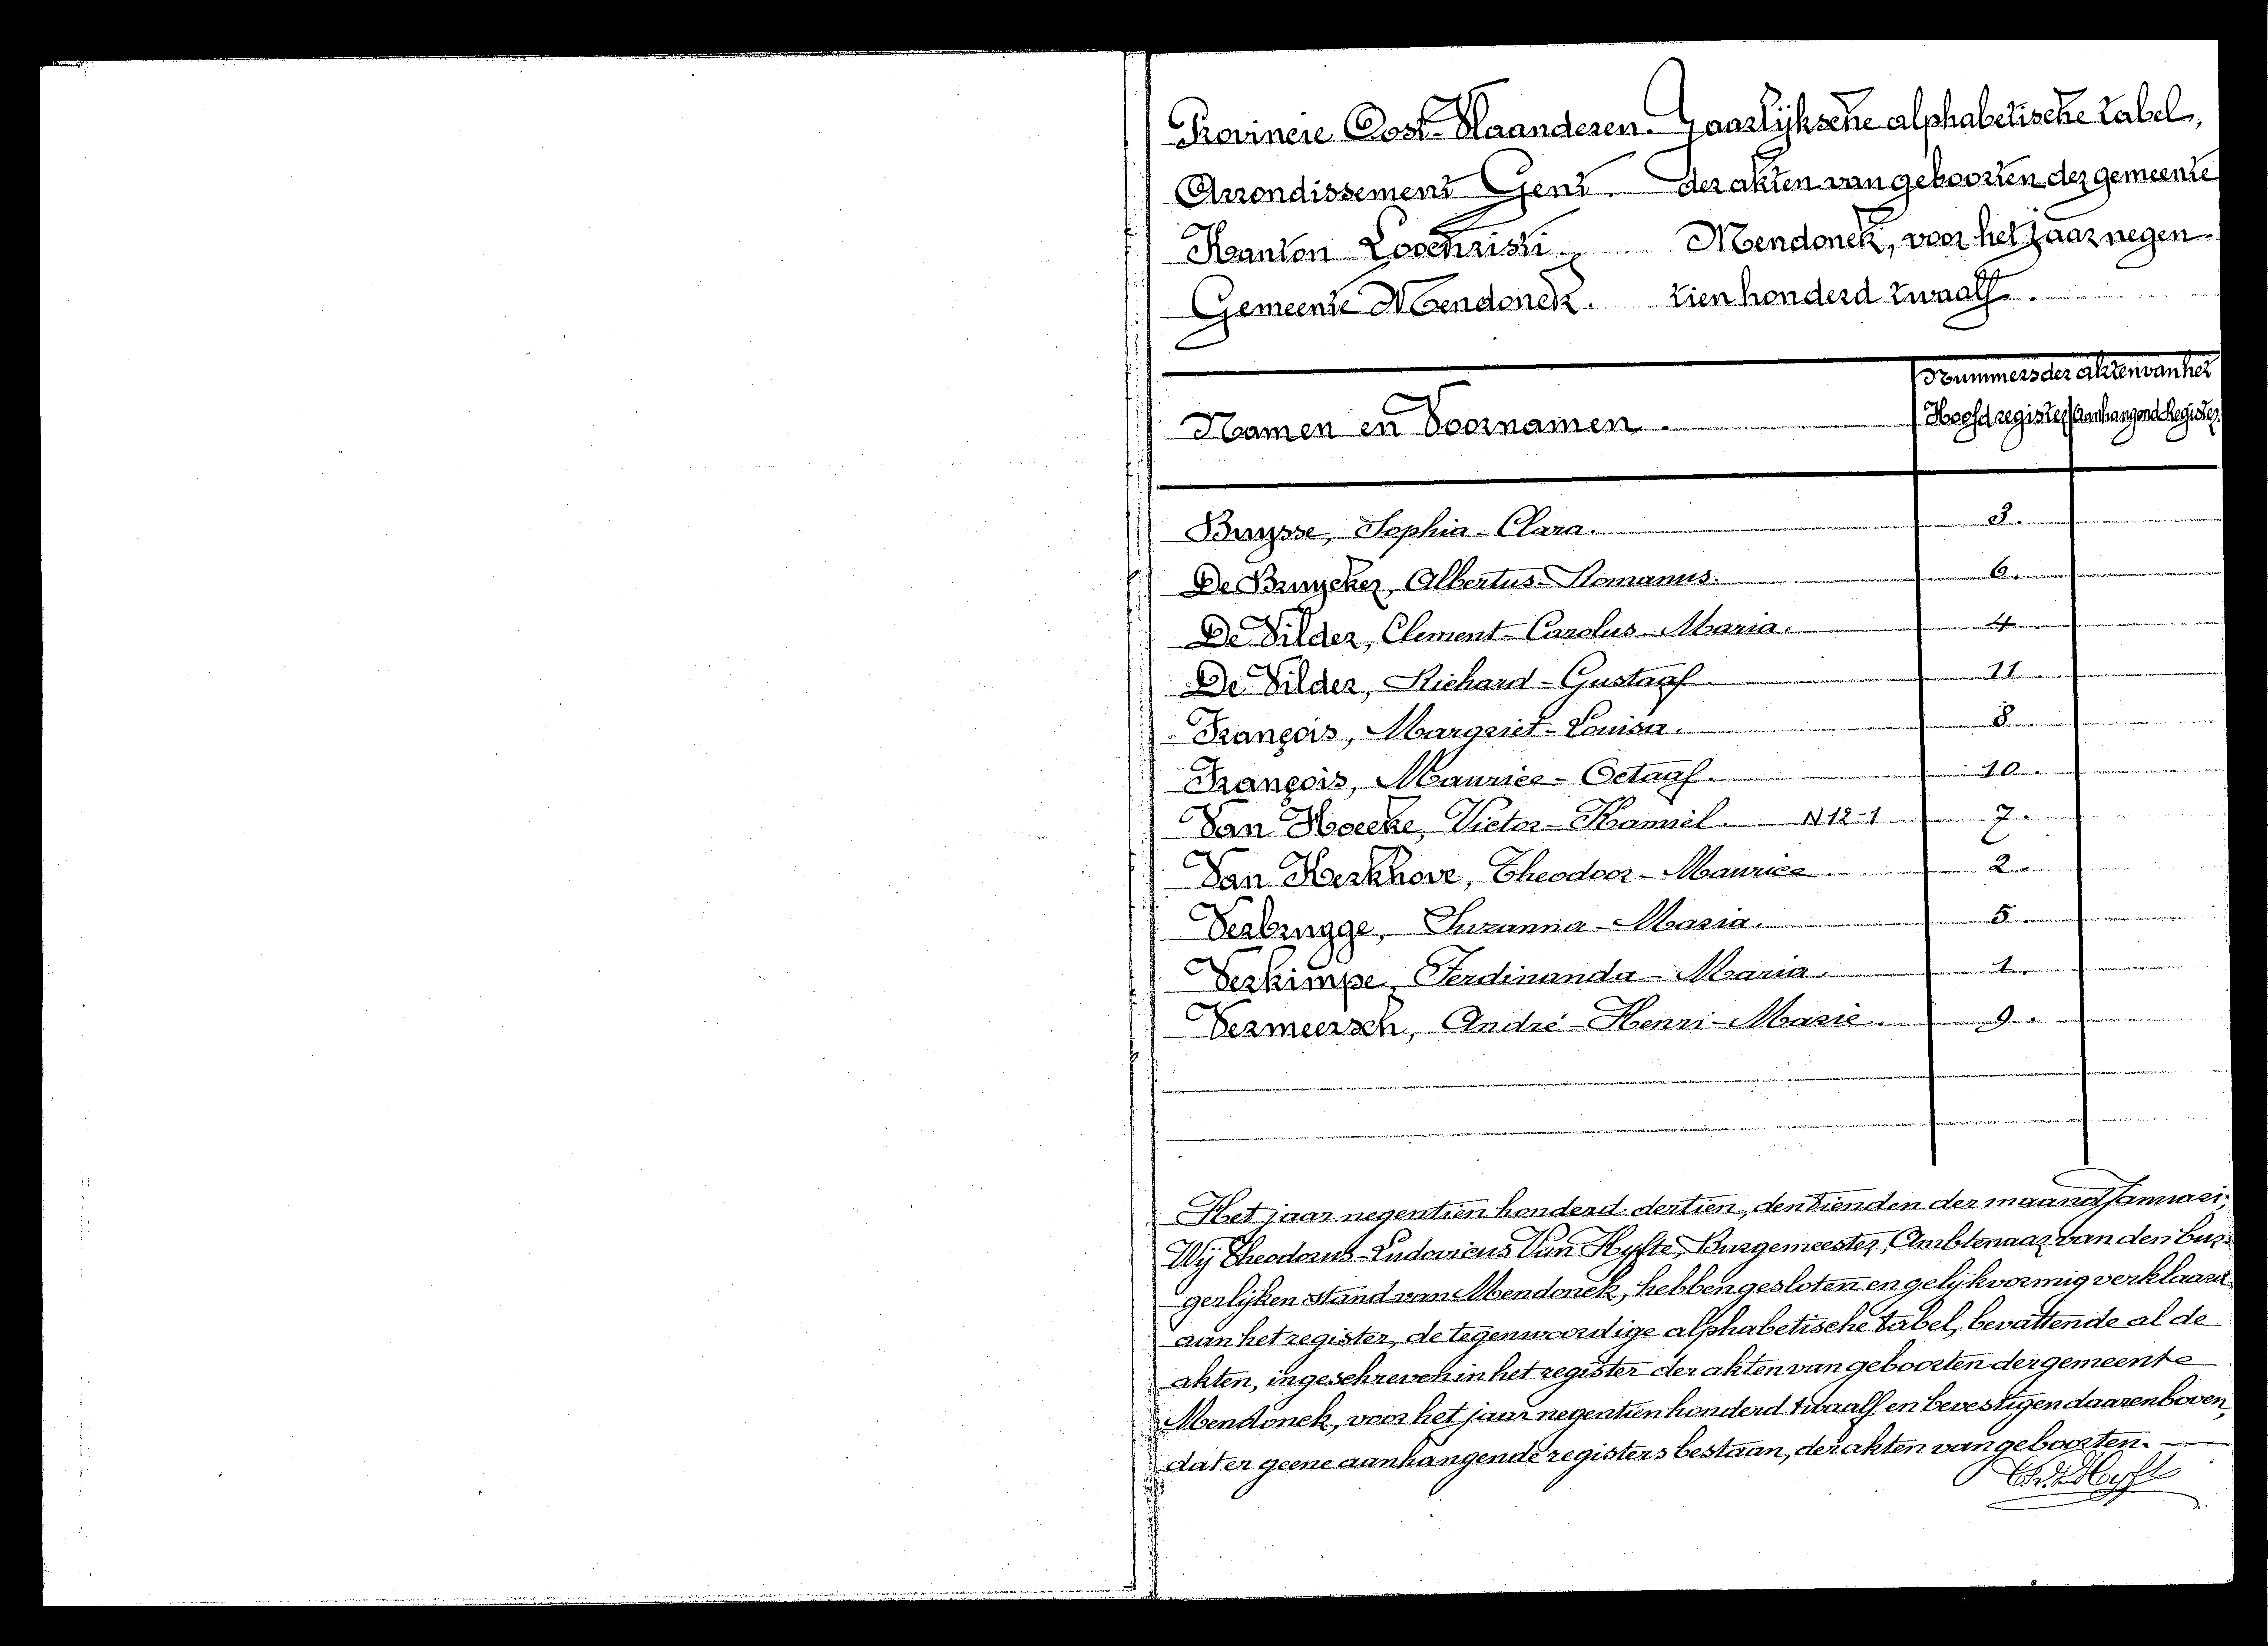 Provincie Oost-Vlaanderen. Jaarlijksche alphabetische tabel,
Arrondissement Gent. der akten van geboorten der gemeente
Kanton Loochristi. Mendonck, voor het jaar negen-
Gemeente Mendonck. tien honderd twaalf.
Nummers der akten van het
Namen en Voornamen. Hoofdregister Aanhangend Register
Buysse, Sophia-Clara. 3.
De Bruycker, Albertus-Romanus. 6.
De Vilder, Clement-Carolus-Maria. 4.
De Vilder, Richard-Gustaaf. 11.
François, Margriet-Louisa. 8.
François, Maurice-Octaaf. 10.
Van Hoecke, Victor-Kamiel. N 12-1 7.
Van Kerkhove, Theodoor-Maurice. 2.
Verbrugge, Suzanna-Maria. 5.
Verkimpe, Ferdinanda-Maria. 1.
Vermeersch, André-Henri-Marie. 9.
Het jaar negentien honderd dertien, den tienden der maand Januari;
Wij Theodorus-Ludovicus Van Hyfte, Burgemeester, Ambtenaar van den bur-
gerlijken stand van Mendonck, hebben gesloten en gelijkvormig verklaard
aan het register, de tegenwoordige alphabetische tabel, bevattende al de
akten, ingeschreven in het register der akten van geboorten der gemeente
Mendonck, voor het jaar negentien honderd twaalf en bevestigen daarenboven,
dat er geene aanhangende registers bestaan, der akten van geboorten.
Th. V. Hyfte